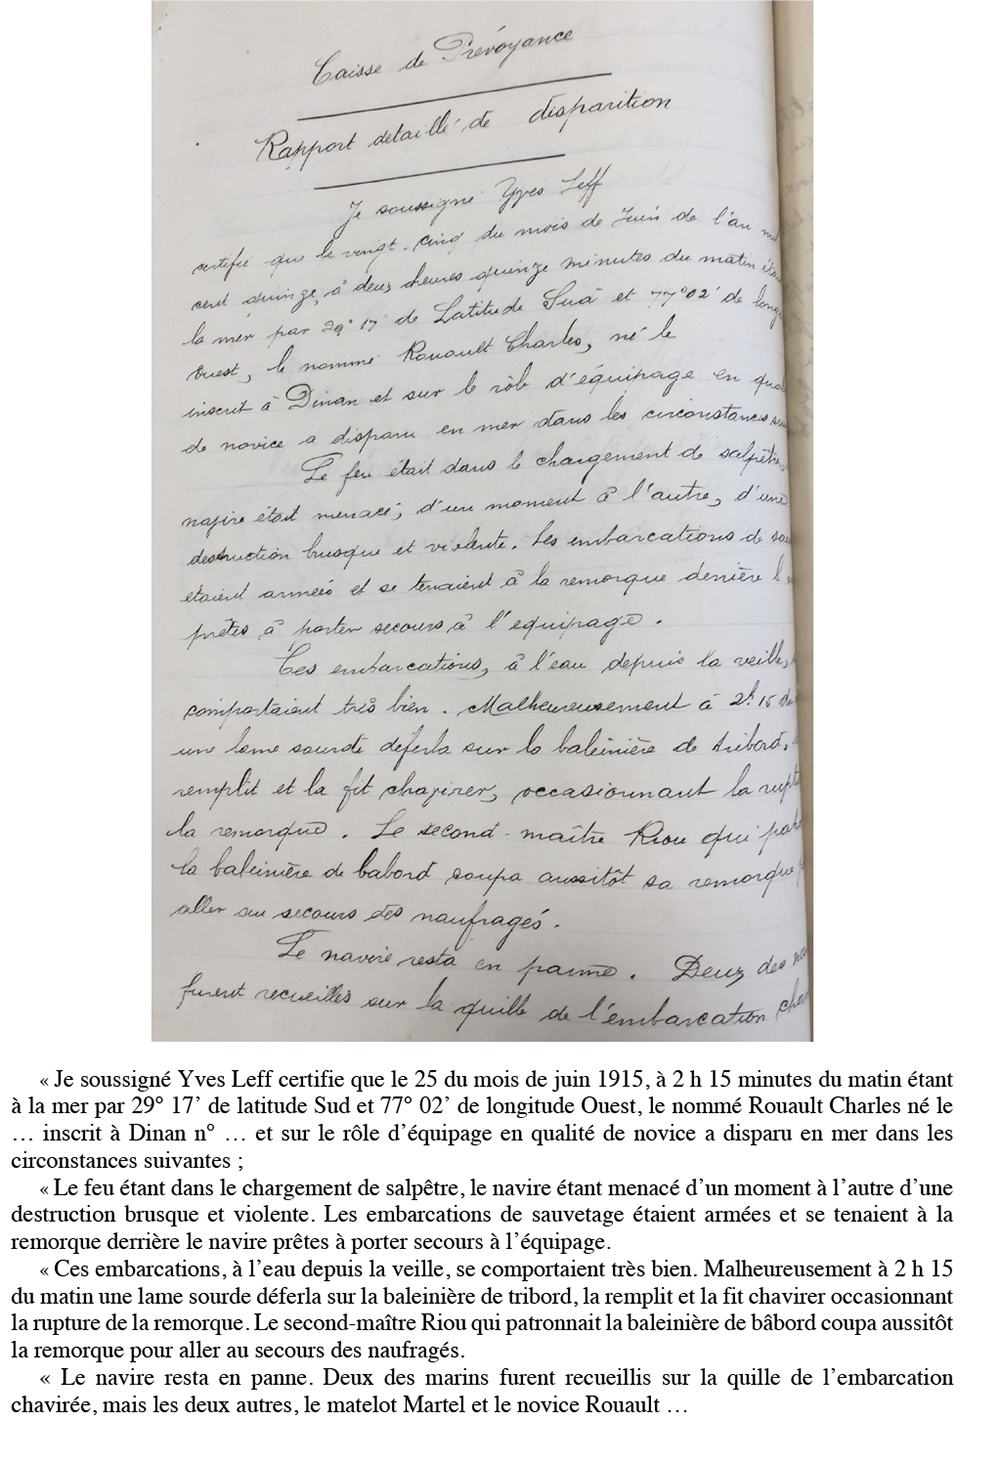 Caisse de Prévoyance
Rapport détaillé de disparition
Je soussigné Yves Leff
certifie que le vingt-cinq du mois de Juin de l'an
cent quinze, à deux heures quinze minutes du matin
la mer par 29° 17' de Latitude Sud et 77° 02' de
Ouest, le nommé Rouault Charles, né le
inscrit à Dinan et sur le rôle d'équipage en
de novice a disparu en mer dans les circonstances
Le feu était dans le chargement de salpêtre
navire était menacé, d'un moment à l'autre, d'une
destruction brusque et violente. Les embarcations de
étaient armées et se tenaient à la remorque derrière
prêtes à porter secours à l'équipage.
Ces embarcations, à l'eau depuis la veille,
comportaient très bien. Malheureusement à 2h 15
une lame sourde déferla sur la baleinière de tribord,
remplit et la fit chavirer, occasionnant la
la remorque. Le second-maître Riou qui
la baleinière de babord coupa aussitôt sa remorque
aller au secours des naufragés.
Le navire resta en panne. Deux des
furent recueillis sur la quille de l'embarcation
« Je soussigné Yves Leff certifie que le 25 du mois de juin 1915, à 2 h 15 minutes du matin étant
à la mer par 29° 17’ de latitude Sud et 77° 02’ de longitude Ouest, le nommé Rouault Charles né le
… inscrit à Dinan n° … et sur le rôle d’équipage en qualité de novice a disparu en mer dans les
circonstances suivantes ;
« Le feu étant dans le chargement de salpêtre, le navire étant menacé d’un moment à l’autre d’une
destruction brusque et violente. Les embarcations de sauvetage étaient armées et se tenaient à la
remorque derrière le navire prêtes à porter secours à l’équipage.
« Ces embarcations, à l’eau depuis la veille, se comportaient très bien. Malheureusement à 2 h 15
du matin une lame sourde déferla sur la baleinière de tribord, la remplit et la fit chavirer occasionnant
la rupture de la remorque. Le second-maître Riou qui patronnait la baleinière de bâbord coupa aussitôt
la remorque pour aller au secours des naufragés.
« Le navire resta en panne. Deux des marins furent recueillis sur la quille de l’embarcation
chavirée, mais les deux autres, le matelot Martel et le novice Rouault …